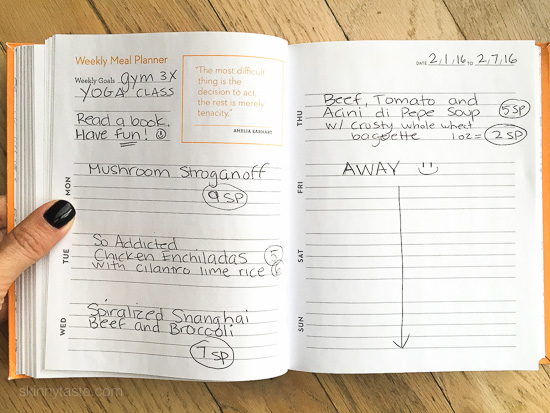 Weekly Meal Planner
Weekly Goals gym 3x
YOGA CLASS
Read a book.
Have fun!
"The most difficult
thing is the
decision to act,
the rest is merely
tenacity."
AMELIA EARHART
MON
Mushroom Stroganoff
9 SP
TUE
So Addicted
Chicken Enchiladas 5
with cilantro lime rice 6
WED
Spiralized Shanghai
Beef and Broccoli
7 SP
DATE 2,1,16 TO 2,7,16
THU
Beef, Tomato and
Acini di Pepe Soup 5 SP
w/ crusty whole wheat
baguette 1 oz = 2 SP
FRI
AWAY
SAT
SUN
skinnytaste.com